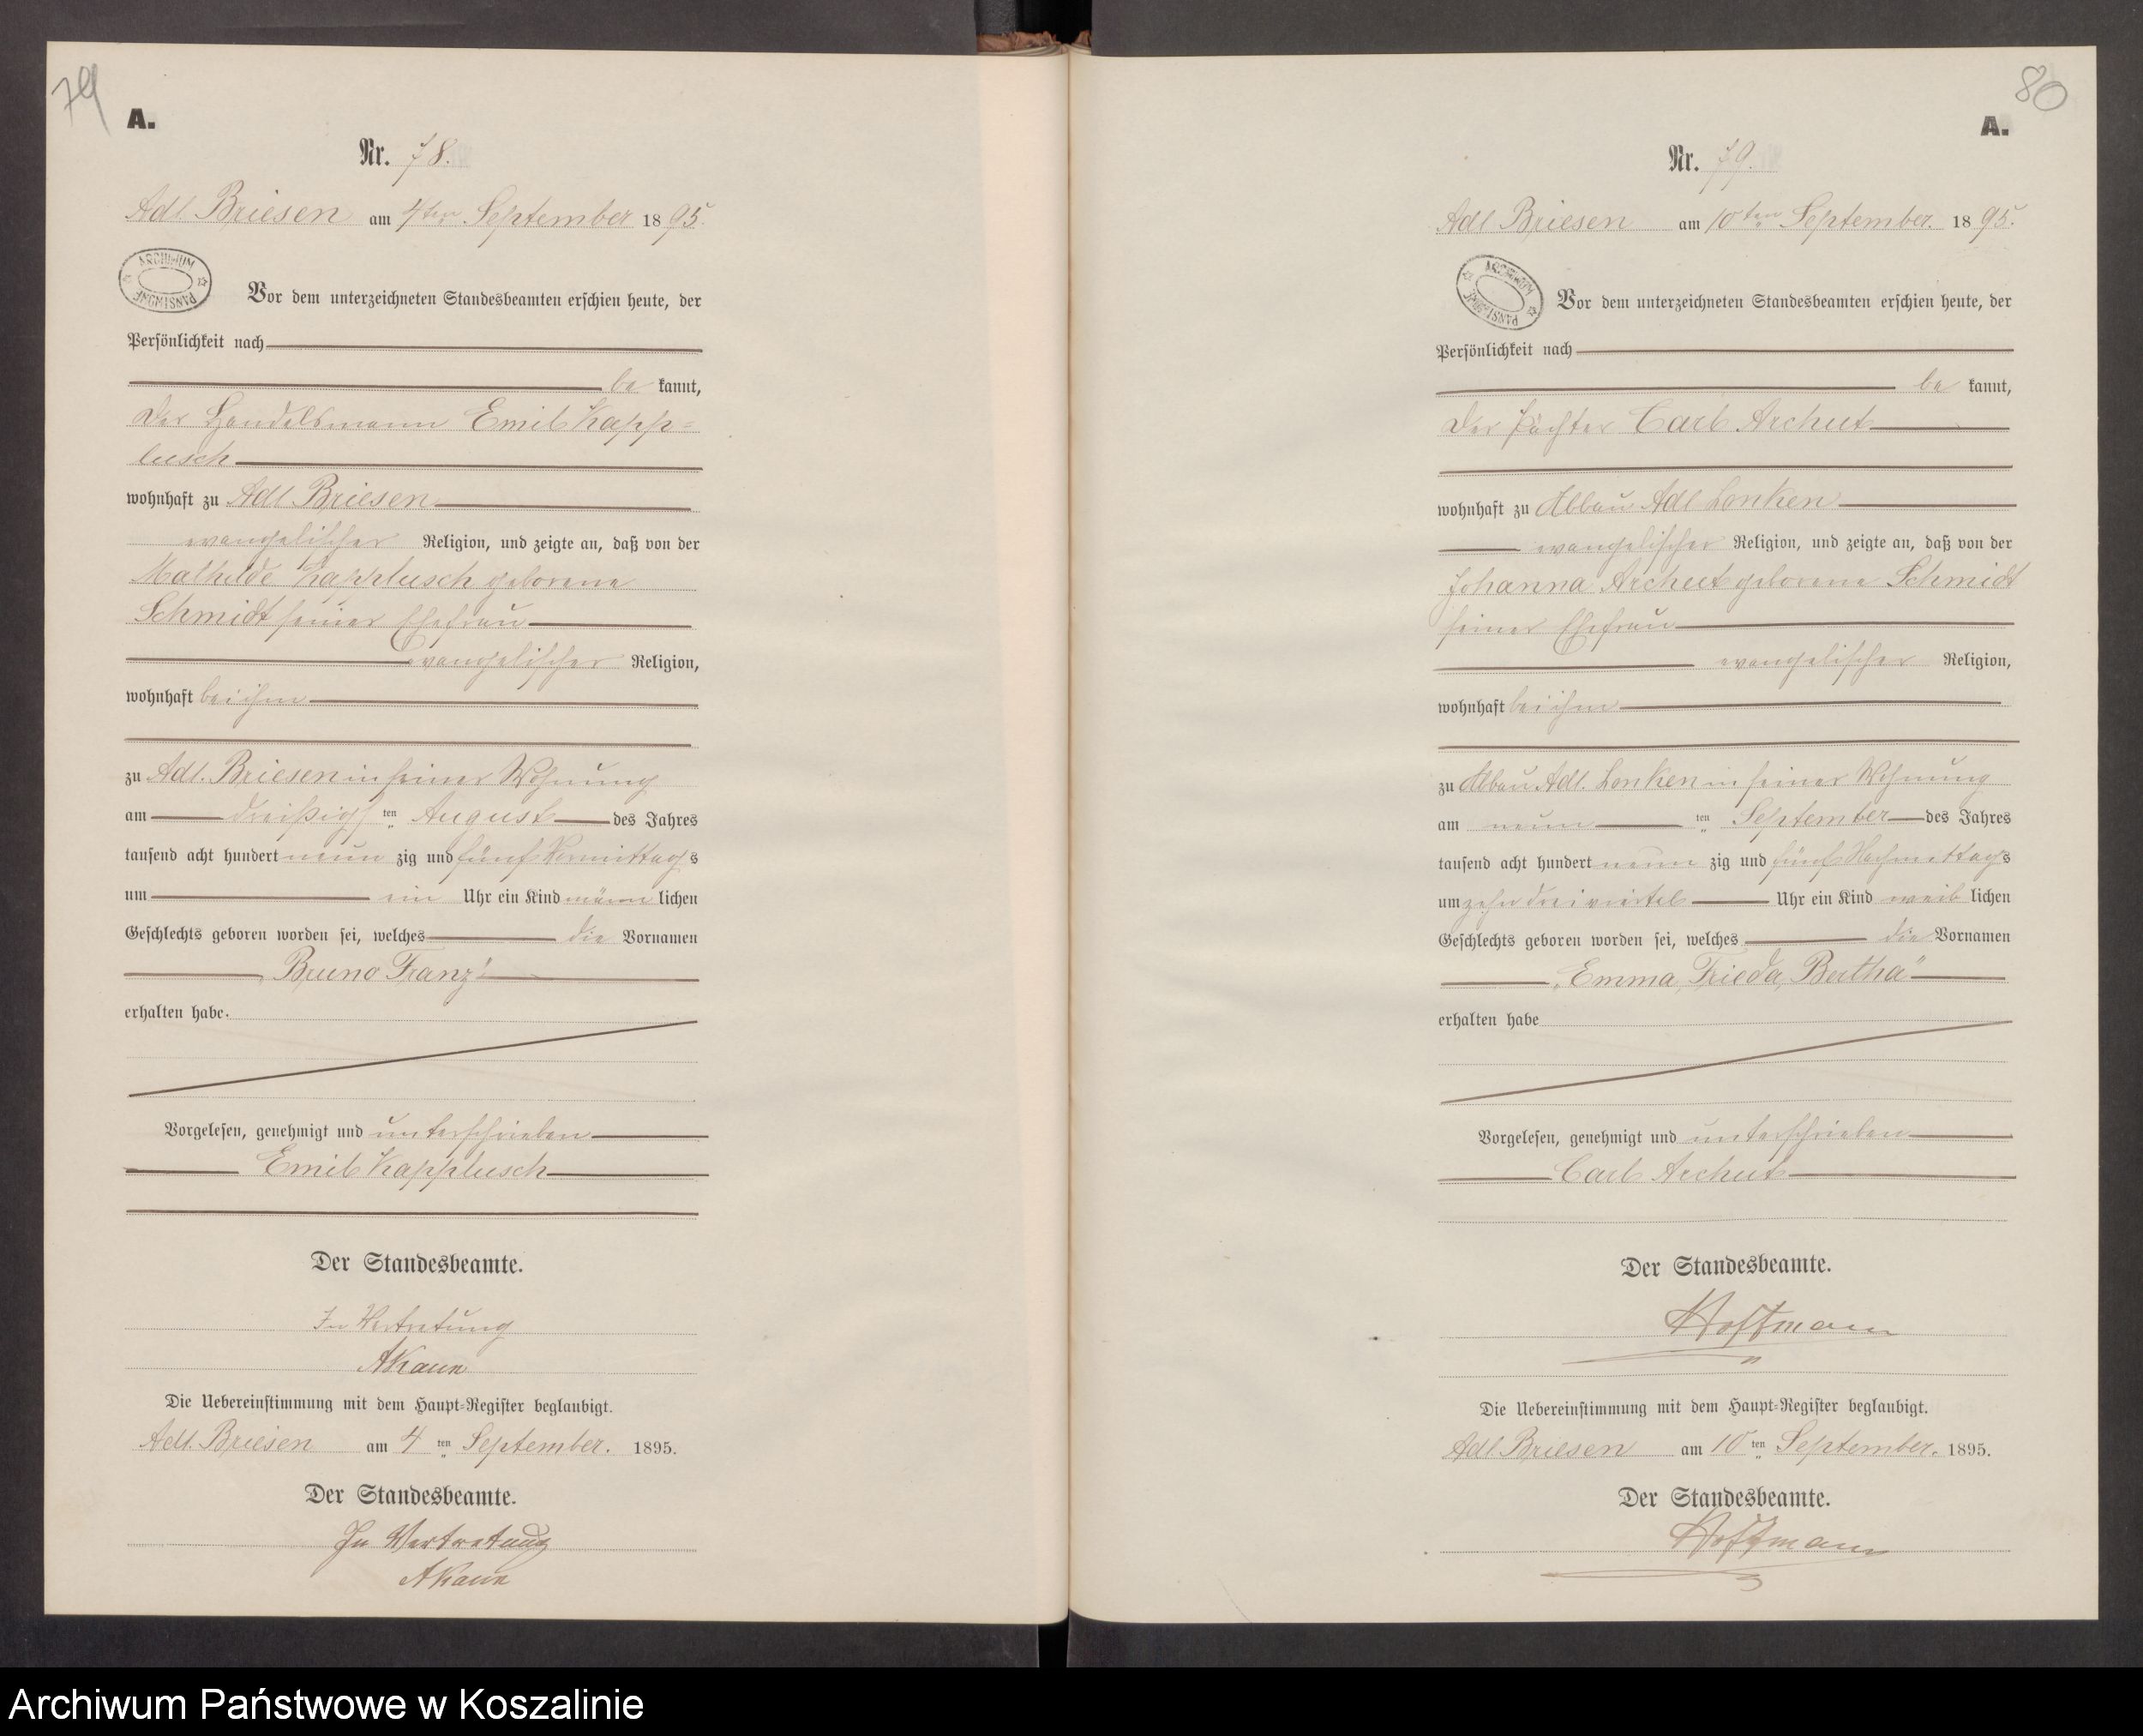 79
A.
Nr. 78.
Adl. Briesen am 4ten September 1895.
ARCHIWUM PAŃSTWOWE
Vor dem unterzeichneten Standesbeamten erschien heute, der
Persönlichkeit nach
be kannt,
der Handelsmann Emil Kapp=
lusch
wohnhaft zu Adl. Briesen
evangelischer Religion, und zeigte an, daß von der
Mathilde Kapplusch geborene
Schmidt seiner Ehefrau
evangelischer Religion,
wohnhaft bei ihm
zu Adl. Briesen in seiner Wohnung
am dreißigs ten August des Jahres
tausend acht hundert neun zig und fünf Vormittags
um ein Uhr ein Kind männ lichen
Geschlechts geboren worden sei, welches die Vornamen
„Bruno Franz“
erhalten habe.
Vorgelesen, genehmigt und unterschrieben
Emil Kapplusch
Der Standesbeamte.
In Vertretung
Die Uebereinstimmung mit dem Haupt-Register beglaubigt.
Adl. Briesen am 4 ten September. 1895.
Der Standesbeamte.
In Vertretung
80
A.
Nr. 79.
Adl Briesen am 10ten September. 1895.
ARCHIWUM PAŃSTWOWE
Vor dem unterzeichneten Standesbeamten erschien heute, der
Persönlichkeit nach
be kannt,
der Pächter Carl Archut
wohnhaft zu Abbau Adl Lonken
evangelischer Religion, und zeigte an, daß von der
Johanna Archut geborene Schmidt
seiner Ehefrau
evangelischer Religion,
wohnhaft bei ihm
zu Abbau Adl. Lonken in seiner Wohnung
am neun ten September des Jahres
tausend acht hundert neun zig und fünf Nachmittags
um zehn dreiviertel Uhr ein Kind weib lichen
Geschlechts geboren worden sei, welches die Vornamen
„Emma, Frieda, Bertha“
erhalten habe
Vorgelesen, genehmigt und unterschrieben
Carl Archut
Der Standesbeamte.
Hoffmann
Die Uebereinstimmung mit dem Haupt-Register beglaubigt.
Adl Briesen am 10 ten September. 1895.
Der Standesbeamte.
Hoffmann
Archiwum Państwowe w Koszalinie